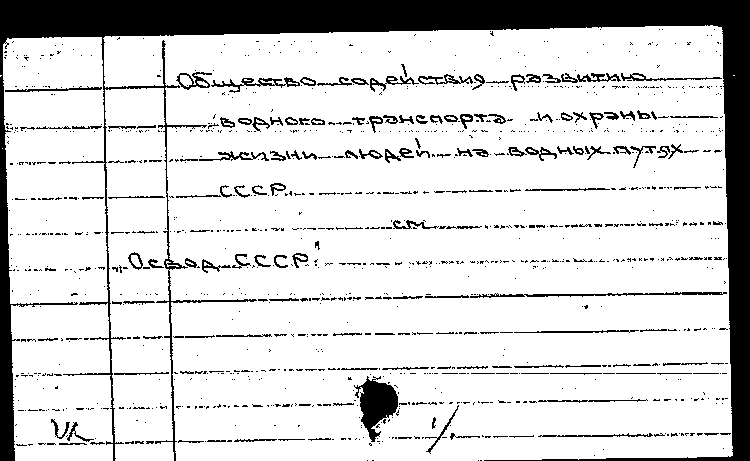 Общество содействия развитию
водного транспорта и охраны
жизни людей на водных путях
СССР.
см
„Освод СССР"